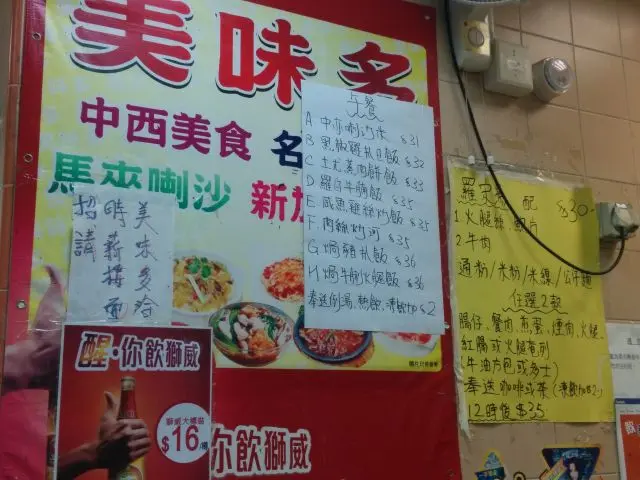 美味多
中西美食 名
馬來喇沙 新加
午餐
A 中亦喇沙米 $31
B 黑椒雞扒飯 $32
C 土尤蒸肉餅飯 $33
D 羅仔牛腩飯 $35
E. 咸魚雞絲炒飯 $35
F. 肉絲炒河 $35
G. 焗豬扒飯 $36
H. 焗牛脷火腿飯 $36
奉送例湯、熱飲、凍飲加$2
美味多冷
時薪樓面
招請
醒·你飲獅威
獅威大樽裝
$16/樽
你飲獅威
配 $30-
1 火腿絲
2 牛肉
通粉/米粉/米線/公仔麵
任選2款
腸仔、餐肉、煎蛋、煙肉、火腿、
紅腸或火腿奄列
(牛油方包或多士)
奉送咖啡或茶(凍飲加$2-)
12時後$35